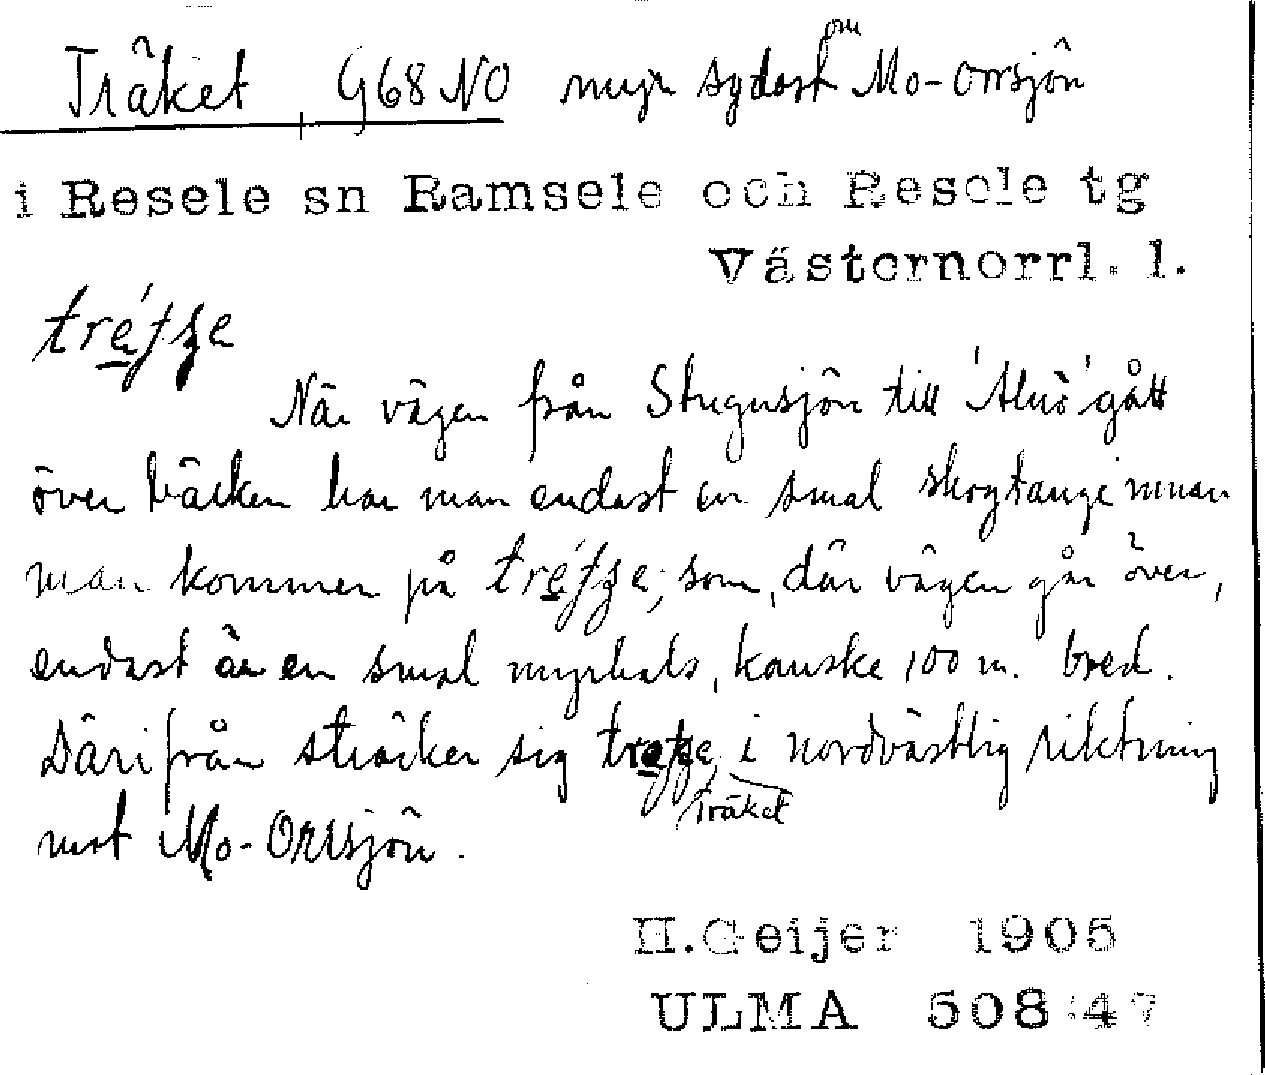 Träket G68NO myr sydost om Mo-Orrsjön
i Resele sn Ramsele och Resele tg
Västernorrl. l.
När vägen från Stugusjön till gått
över bäcken har man endast en smal skogtange innan
man kommer på som, där vägen går över,
endast är en smal myrhals, kanske 100 m. bred.
Därifrån sträcker sig i nordvästlig riktning
Träket
mot Mo-Orrsjön.
H.Geijer 1905
ULMA 508:47